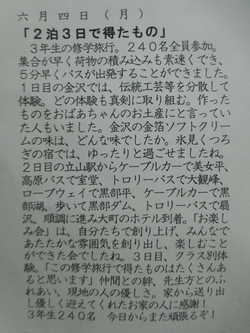 六月四日(月)
「2泊3日で得たもの」
3年生の修学旅行。240名全員参加。
集合が早く荷物の積み込みも素速くでき、
5分早くバスが出発することができました。
1日目の金沢では、伝統工芸等を分散して
体験。どの体験も真剣に取り組む。作った
ものをおばあちゃんのお土産にと言ってい
た人もいました。金沢の金箔ソフトクリー
ムの味は、どんな味でしたか。氷見くつろ
ぎの宿では、ゆったりと過ごせましたね。
2日目の立山駅からケーブルカーで美女平、
高原バスで室堂、トロリーバスで大観峰、
ロープウェイで黒部平、ケーブルカーで黒
部湖、歩いて黒部ダム、トロリーバスで扇
沢、順調に進み大町のホテル到着。「お楽し
み会」は、自分たちで創り上げ、みんなで
あたたかな雰囲気を創り出し、楽しむこと
ができた会でしたね。3日目、クラス別体
験。「この修学旅行で得たものはたくさんあ
ると思います」仲間との絆、先生方とのふ
れあい、現地の人の優しさ。家から送り出
し優しく迎えてくれたお家の人に感謝!
3年生240名 今日からまた頑張るぞ!